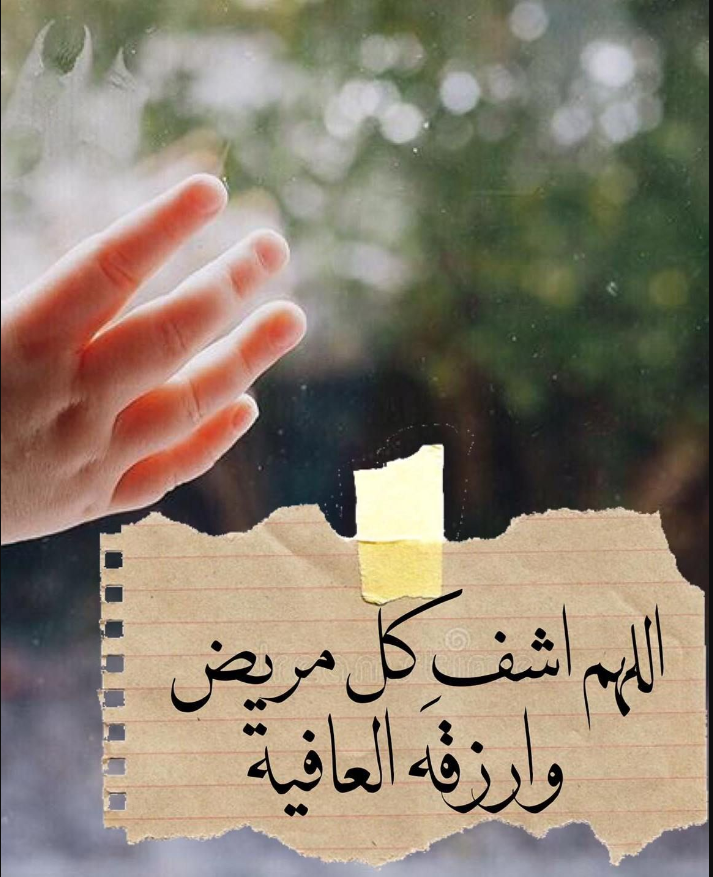 اللهم اشفِ كل مريض
وارزقه العافية